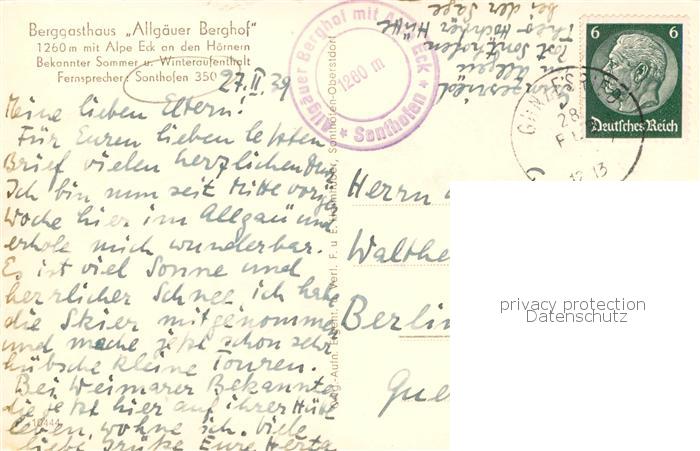 Berggasthaus „Allgäuer Berghof"
1260 m mit Alpe Eck an den Hörnern
Bekannter Sommer u. Winteraufenthalt
Fernsprecher: Sonthofen 350
27. II. 39
Meine lieben Eltern!
Für Euren lieben letzten
Brief vielen herzlichen Dank
Ich bin nun seit Mitte vorige
Woche hier im Allgäu und
erhole mich wunderbar.
Es ist viel Sonne und
herrlicher Schnee ich habe
die Skier mitgenommen
und mache jetzt schon sehr
hübsche kleine Touren.
Bei Weimarer Bekannten
die jetzt hier auf ihrer Hütte
leben, wohne ich. Viele
liebe Grüße Eure Herta
10444
Allgäuer Berghof mit Alpe Eck
1260 m
Sonthofen
Post Sonthofen
im Allgäu
bei der Säge
6 6
Deutsches Reich
28.
12-13
Herrn
Walthe
Berlin
privacy protection
Datenschutz